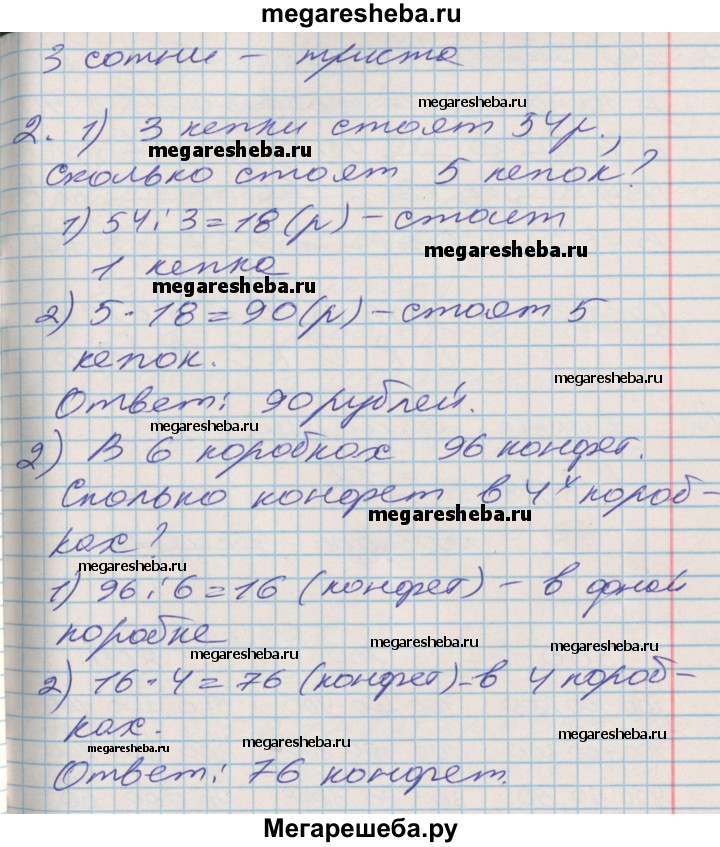 megaresheba.ru
3 сотни – триста
megaresheba.ru
2. 1) 3 кепки стоят 54 р.,
megaresheba.ru
Сколько стоят 5 кепок?
1) 54 : 3 = 18 (р) – стоит
megaresheba.ru
1 кепка
megaresheba.ru
2) 5 · 18 = 90 (р) – стоят 5
кепок.
megaresheba.ru
Ответ: 90 рублей.
megaresheba.ru
2) В 6 коробках 96 конфет.
Сколько конфет в 4х короб-
megaresheba.ru
ках?
megaresheba.ru
1) 96 : 6 = 16 (конфет) – в одной
коробке
megaresheba.ru
megaresheba.ru
2) 16 · 4 = 76 (конфет) – в 4 короб-
ках.
megaresheba.ru
megaresheba.ru
megaresheba.ru
Ответ: 76 конфет.
megaresheba.ru
megaresheba.ru
Мегарешеба.ру